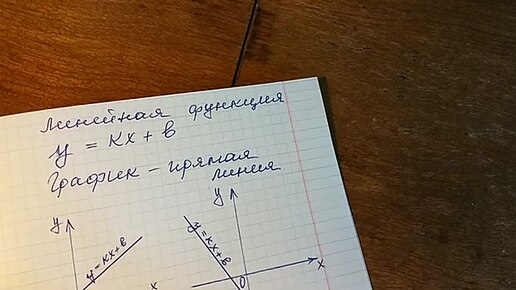 Линейная функция
y = kx + b
График – прямая
линия.
y
y
y = kx+b
y = kx+b
x
0
x